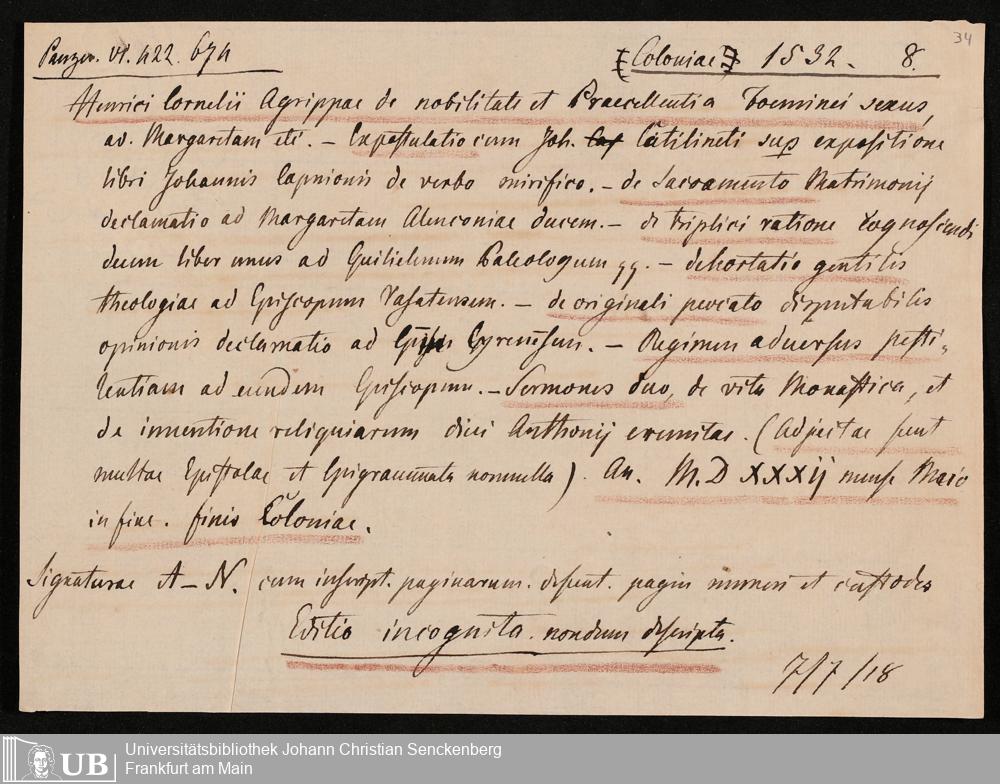 34
Panzer. VI. 422. 674 [Coloniae] 1532. 8.
Henrici Cornelii Agrippae de nobilitate et Praecellentia Foeminei sexus,
ad. Margaretam etc. - Expostulatio cum Joh. Catilineti sup expositione
libri Johannis Capnionis de verbo mirifico. - de Sacramento Matrimonij
declamatio ad Margaretam Alenconiae ducem. - de triplici ratione cognoscendi
deum liber unus ad Guilielmum Paleologum - dehortatio gentilis
theologiae ad Episcopum Vasatensem. - de originali peccato disputabilis
opinionis declamatio ad Cyrenēsem. - Regimen adversus pesti-
lentiam ad eundem Episcopum. - Sermones duo, de vita Monastica, et
de inuentione reliquiarum diui Anthonij eremitae. (Adjectae sunt
multae Epistolae et Epigrammata nonnulla). An. M.D XXXij mense Maio
in fine. finis Coloniae.
Signaturae A-N. cum inscript. paginarum. desunt. pagin numeri et custodes
Editio incognita. nondum descripta.
7/7/18
UB Universitätsbibliothek Johann Christian Senckenberg
Frankfurt am Main